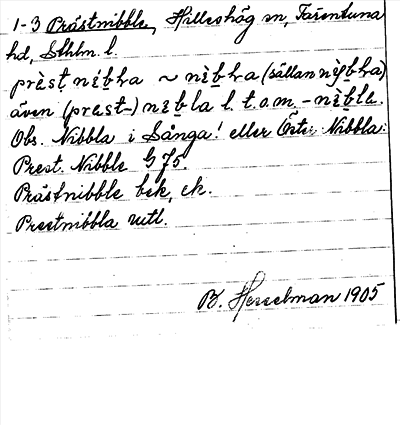 1-3 Prästnibble, Hilleshög sn, Färentuna
hd, Sthlm. l.
prèst nìbha ~ nìbha (sällan nìbha)
även (prest-) nìbla l. t.o.m. -nìbla.
Obs. Nibbla i Sånga! eller Öster Nibbla.
Prest. Nibble G 75.
Prästnibble bek, ek.
Prestnibbla uttl.
B. Hesselman 1905